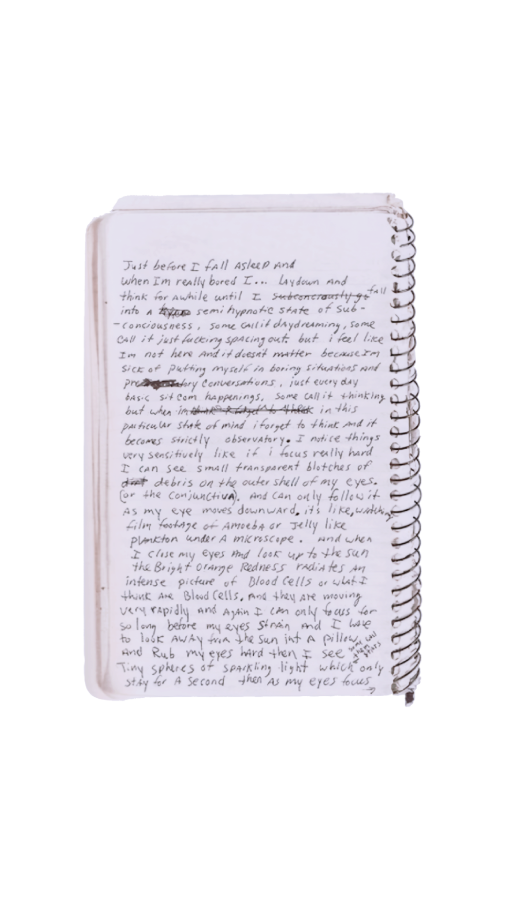 Just before I fall AsleeP And
when Im really bored I... Laydown And
think for Awhile until I subconciously go fall
into a semi hypnotic state of Sub-
-conciousness, some call it daydreaming, some
call it just fucking spacing out but i feel like
Im not here And it doesnt matter because Im
sick of Putting myself in boring situations and
pre ory Conversations, just every day
basic sit com happenings, some call it thinking
but when im in this
particular state of mind i forget to think And it
becomes strictly observatory. I notice things
very sensitively like if i focus really hard
I can see small transparent blotches of
debris on the outer shell of my eyes.
(or the conjunctiva). And can only follow it
As my eye moves downward, it's like, watching
film footage of Amoeba or Jelly like
plankton under A microscope. And when
I close my eyes And look up to the sun
the Bright orange Redness radiates An
intense picture of Blood Cells or what I
think are Blood Cells. And they are moving
very rapidly And Again I can only focus for
so long before my eyes strain And I have
to look AwAy from the Sun int A pillow
And Rub my eyes hard then I see
Tiny spheres of sparkling light which only
stay for A second then As my eyes focus